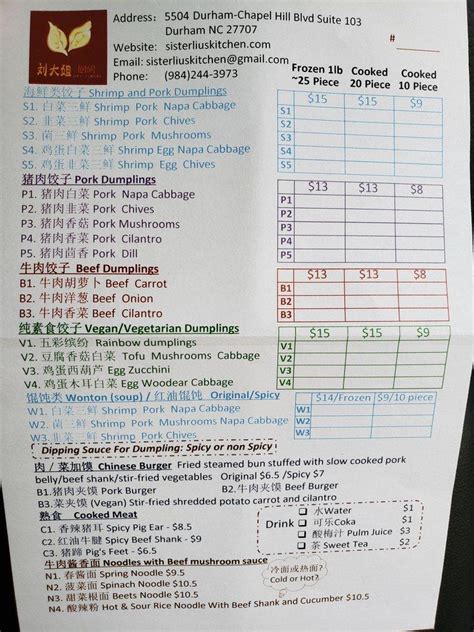 刘大姐
Address: 5504 Durham-Chapel Hill Blvd Suite 103
Durham NC 27707
Website: sisterliuskitchen.com
Email: sisterliuskitchen@gmail.com
Phone: (984)244-3973
#
Frozen 1lb ~25 Piece Cooked 20 Piece Cooked 10 Piece
海鲜类饺子 Shrimp and Pork Dumplings $15 $15 $9
S1. 白菜三鲜 Shrimp Pork Napa Cabbage S1
S2. 韭菜三鲜 Shrimp Pork Chives S2
S3. 菌三鲜 Shrimp Pork Mushrooms S3
S4. 鸡蛋白菜三鲜 Shrimp Egg Napa Cabbage S4
S5. 鸡蛋韭菜三鲜 Shrimp Egg Chives S5
猪肉饺子 Pork Dumplings $13 $13 $8
P1. 猪肉白菜 Pork Napa Cabbage P1
P2. 猪肉韭菜 Pork Chives P2
P3. 猪肉香菇 Pork Mushrooms P3
P4. 猪肉香菜 Pork Cilantro P4
P5. 猪肉茴香 Pork Dill P5
牛肉饺子 Beef Dumplings $13 $13 $8
B1. 牛肉胡萝卜 Beef Carrot B1
B2. 牛肉洋葱 Beef Onion B2
B3. 牛肉香菜 Beef Cilantro B3
纯素食饺子 Vegan/Vegetarian Dumplings $15 $15 $9
V1. 五彩缤纷 Rainbow dumplings V1
V2. 豆腐香菇白菜 Tofu Mushrooms Cabbage V2
V3. 鸡蛋西葫芦 Egg Zucchini V3
V4. 鸡蛋木耳白菜 Egg Woodear Cabbage V4
馄饨类 Wonton (soup) / 红油馄饨 Original/Spicy $14/Frozen $9/10 piece
W1. 白菜三鲜 Shrimp Pork Napa Cabbage W1
W2. 菌三鲜 Shrimp Pork Mushrooms Cabbage W2
W3. 韭菜三鲜 Shrimp Pork Chives W3
Dipping Sauce For Dumpling: Spicy or non Spicy
肉 / 菜加馍 Chinese Burger Fried steamed bun stuffed with slow cooked pork
belly/beef shank/stir-fried vegetables Original $6.5 /Spicy $7
B1.猪肉夹馍 Pork Burger B2.牛肉夹馍 Beef Burger
B3.菜夹馍 (Vegan) Stir-fried shredded potato carrot and cilantro
熟食 Cooked Meat
C1. 香辣猪耳 Spicy Pig Ear - $8.5
C2. 红油牛腱 Spicy Beef Shank - $9
C3. 猪蹄 Pig's Feet - $6.5
Drink
水Water $1
可乐Coka $1
酸梅汁 Pulm Juice $3
茶 Sweet Tea $2
牛肉酱香面 Noodles with Beef mushroom sauce
N1. 春酱面 Spring Noodle $9.5
N2. 菠菜面 Spinach Noodle $10.5
N3. 甜菜根面 Beets Noodle $10.5
N4. 酸辣粉 Hot & Sour Rice Noodle With Beef Shank and Cucumber $10.5
冷面或热面?
Cold or Hot?